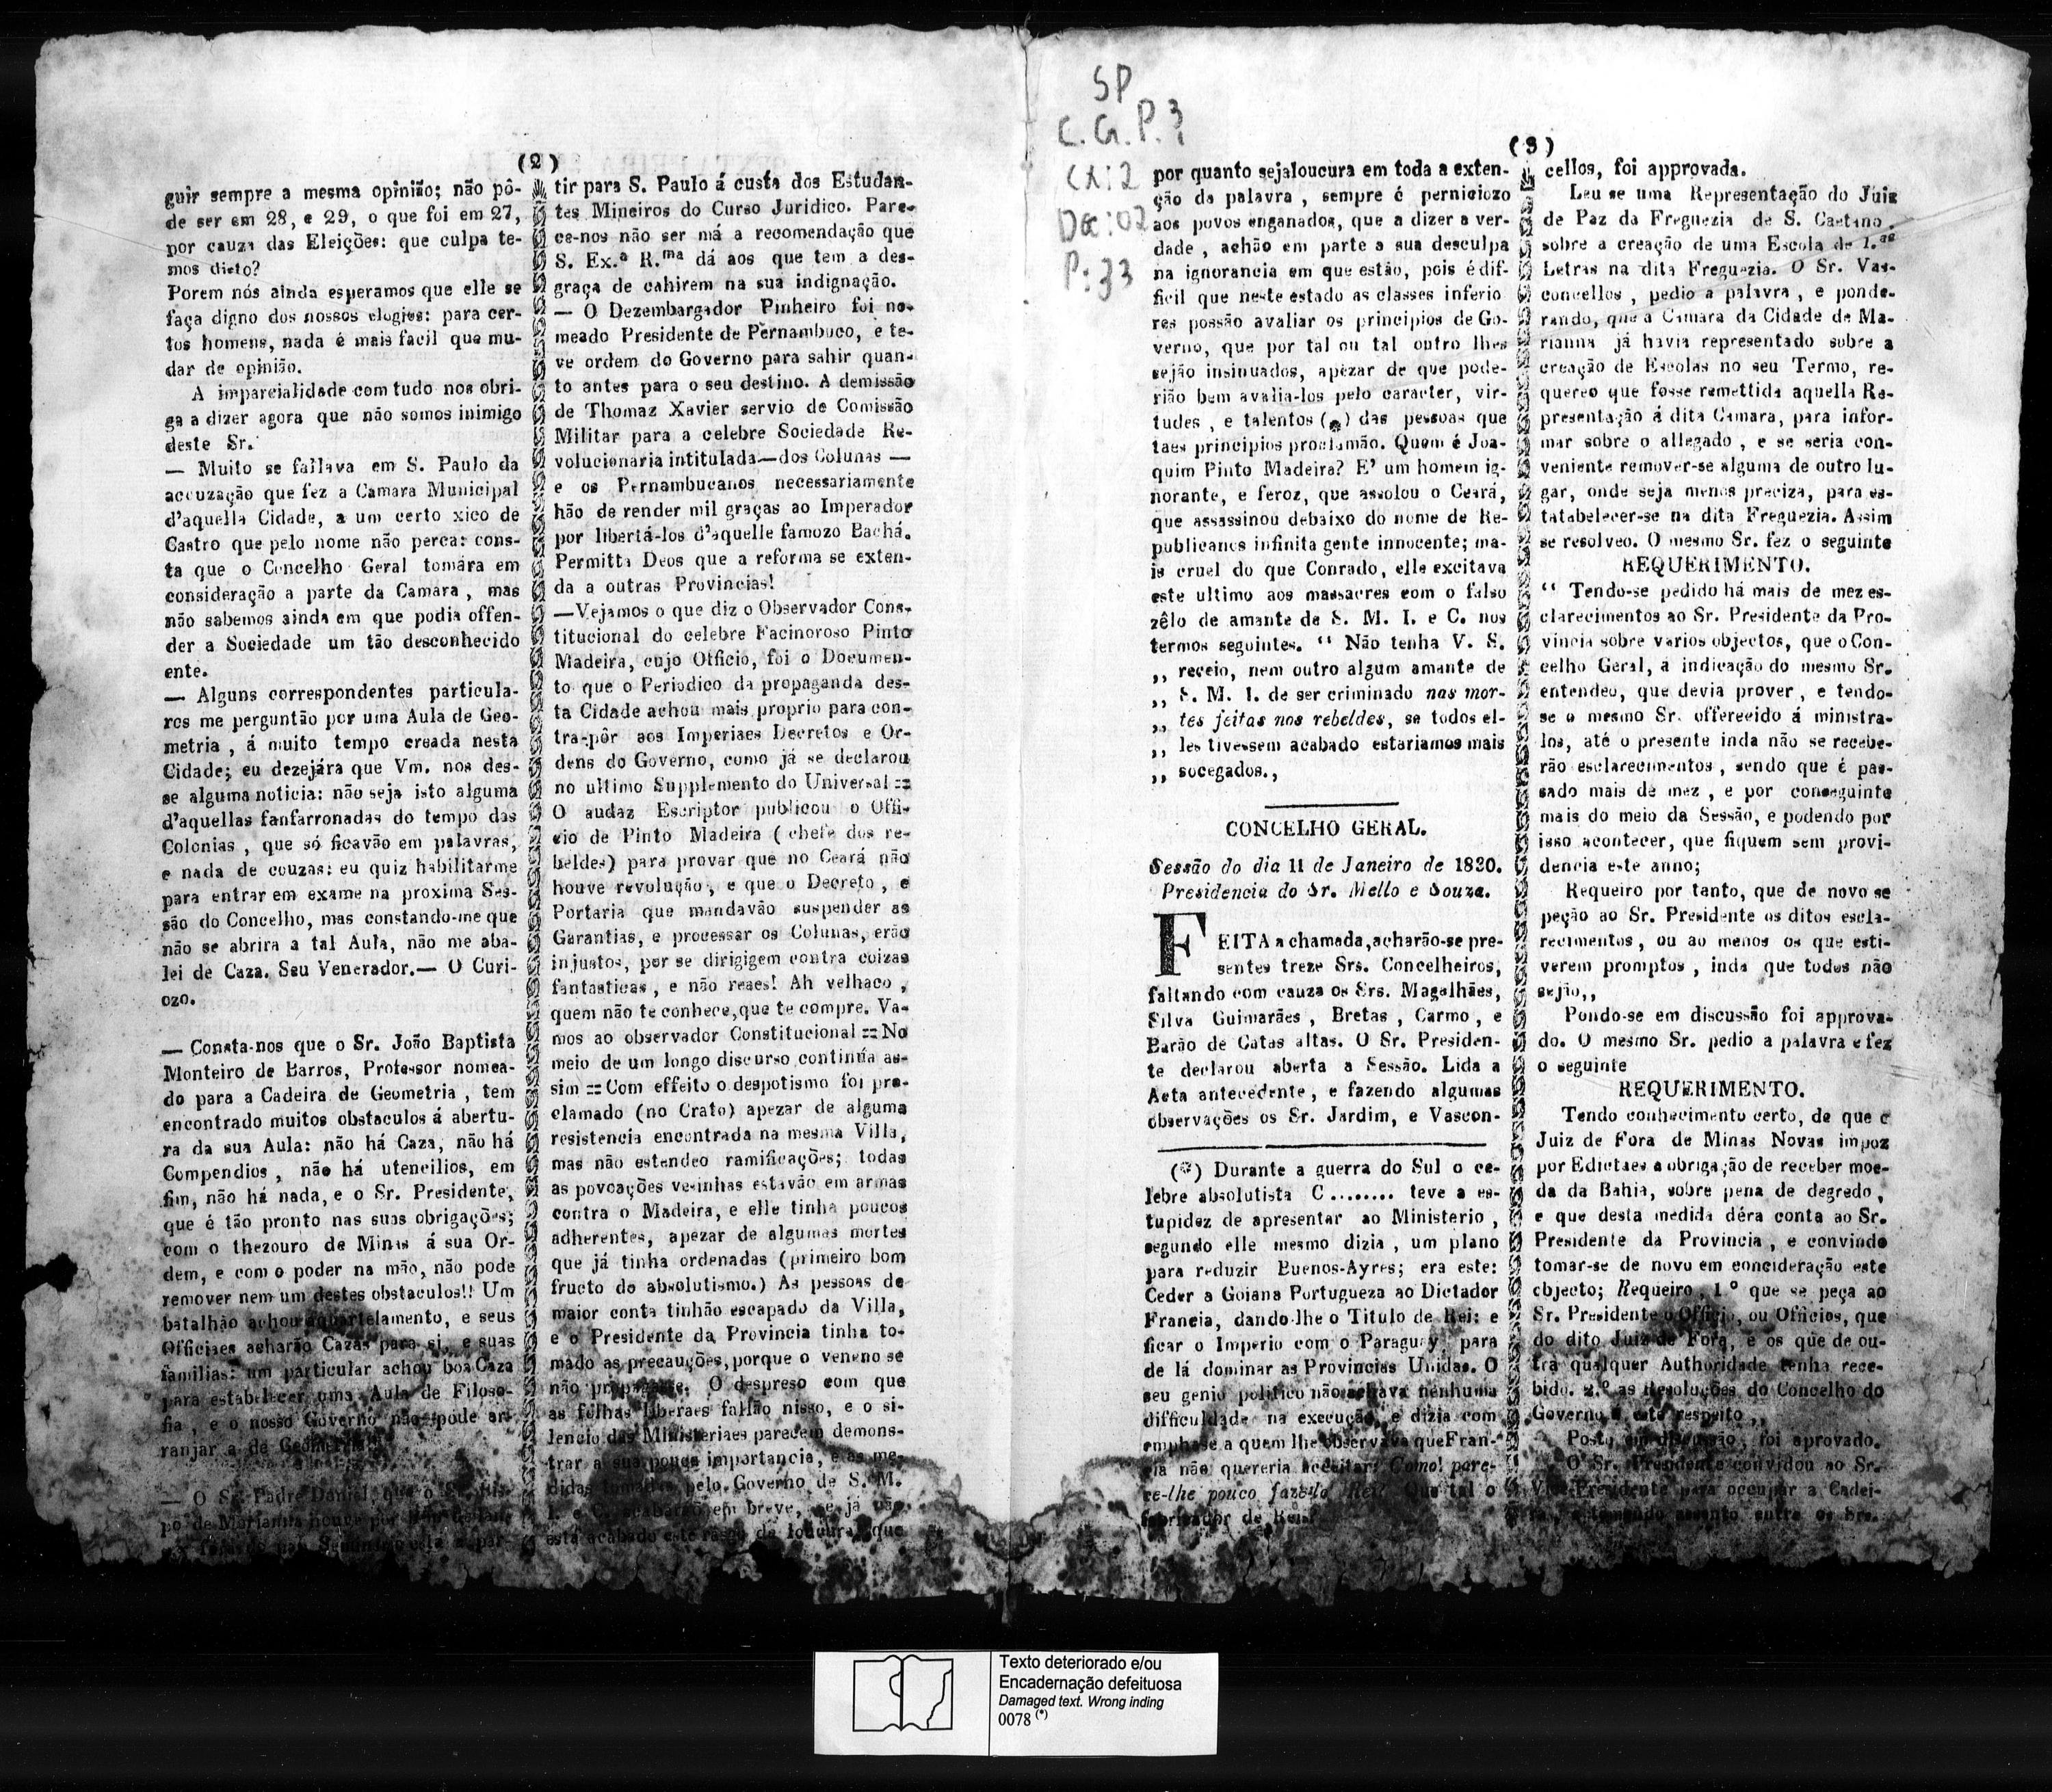 (2)
guir sempre a mesma opinião; não pô-
de ser em 28, e 29, o que foi em 27,
por cauza das Eleições: que culpa te-
mos disto?
Porem nós ainda esperamos que elle se
faça digno dos nossos elogios: para cer-
tos homens, nada é mais facil que mu-
dar de opinião.
A imparcialidade com tudo nos obri-
ga a dizer agora que não somos inimigo
deste Sr.
— Muito se fallava em S. Paulo da
accuzação que fez a Camara Municipal
d'aquella Cidade, a um certo xico de
Castro que pelo nome não perca: cons-
ta que o Concelho Geral tomára em
consideração a parte da Camara, mas
não sabemos ainda em que podia offen-
der a Sociedade um tão desconhecido
ente.
— Alguns correspondentes particula-
res me perguntão por uma Aula de Geo-
metria, á muito tempo creada nesta
Cidade; eu dezejára que Vm. nos des-
se alguma noticia: não seja isto alguma
d'aquellas fanfarronadas do tempo das
Colonias, que só ficavão em palavras,
e nada de couzas: eu quiz habilitarme
para entrar em exame na proxima Ses-
são do Concelho, mas constando-me que
não se abrira a tal Aula, não me aba-
lei de Caza. Seu Venerador.— O Curi-
ozo.
— Consta-nos que o Sr. João Baptista
Monteiro de Barros, Professor nomea-
do para a Cadeira de Geometria, tem
encontrado muitos obstaculos á abertu-
ra da sua Aula: não há Caza, não há
Compendios, não há utencilios, em
fim, não há nada, e o Sr. Presidente,
que é tão pronto nas suas obrigações;
com o thezouro de Minas á sua Or-
dem, e com o poder na mão, não pode
remover nem um destes obstaculos!! Um
batalhão achou aquartelamento, e seus
Officiaes acharão Cazas para si, e suas
familias: um particular achou boa Caza
para estabelecer uma Aula de Filoso-
fia, e o nosso Governo não pode ar-
ranjar a de Geometria
— O Sr. Padre Daniel, que o Sr. Bis-
po de Marianna
tir para S. Paulo á custa dos Estudan-
tes Mineiros do Curso Juridico. Pare-
ce-nos não ser má a recomendação que
S. Ex.ª R.ma dá aos que tem a des-
graça de cahirem na sua indignação.
— O Dezembargador Pinheiro foi no-
meado Presidente de Pernambuco, e te-
ve ordem do Governo para sahir quan-
to antes para o seu destino. A demissão
de Thomaz Xavier servio de Comissão
Militar para a celebre Sociedade Re-
volucionaria intitulada—dos Colunas —
e os Pernambucanos necessariamente
hão de render mil graças ao Imperador
por libertá-los d'aquelle famozo Bachá.
Permitta Deos que a reforma se exten-
da a outras Provincias!
—Vejamos o que diz o Observador Cons-
titucional do celebre Facinoroso Pinto
Madeira, cujo Officio, foi o Documen-
to que o Periodico da propaganda des-
ta Cidade achou mais proprio para con-
tra-pôr aos Imperiaes Decretos e Or-
dens do Governo, como já se declarou
no ultimo Supplemento do Universal =
O audaz Escriptor publicou o Offi-
cio de Pinto Madeira (chefe dos re-
beldes) para provar que no Ceará não
houve revolução, e que o Decreto, e
Portaria que mandavão suspender as
Garantias, e processar os Colunas, erão
injustos, por se dirigigem contra coizas
fantasticas, e não reaes! Ah velhaco,
quem não te conhece, que te compre. Va-
mos ao observador Constitucional = No
meio de um longo discurso continúa as-
sim = Com effeito o despotismo foi pro-
clamado (no Crato) apezar de alguma
resistencia encontrada na mesma Villa,
mas não estendeo ramificações; todas
as povoações vesinhas estavão em armas
contra o Madeira, e elle tinha poucos
adherentes, apezar de algumas mortes
que já tinha ordenadas (primeiro bom
fructo do absolutismo.) As pessoas de
maior conta tinhão escapado da Villa,
e o Presidente da Provincia tinha to-
mado as precauções, porque o veneno se
não propagasse. O despreso com que
as folhas liberaes fallão nisso, e o si-
lencio das Ministeriaes parecem demons-
trar a sua pouca importancia, e as me-
didas tomadas pelo Governo de S. M.
I. e C. acabarão em breve, se já não
está acabado este rasgo de loucura, que
SP
C.G.P.3
CX:2
Doc:02
P:33
(3)
por quanto seja loucura em toda a exten-
ção da palavra, sempre é perniciozo
aos povos enganados, que a dizer a ver-
dade, achão em parte a sua desculpa
na ignorancia em que estão, pois é dif-
ficil que neste estado as classes inferio
res possão avaliar os principios de Go-
verno, que por tal ou tal outro lhes
sejão insinuados, apezar de que pode-
rião bem avalia-los pelo caracter, vir-
tudes, e talentos (*) das pessoas que
taes principios proclamão. Quem é Joa-
quim Pinto Madeira? E' um homem ig-
norante, e feroz, que assolou o Ceará,
que assassinou debaixo do nome de Re-
publicanos infinita gente innocente; ma-
is cruel do que Conrado, elle excitava
este ultimo aos massacres com o falso
zêlo de amante de S. M. I. e C. nos
termos seguintes. “ Não tenha V. S.
,, receio, nem outro algum amante de
,, S. M. I. de ser criminado nas mor-
,, tes feitas nos rebeldes, se todos el-
,, les tivessem acabado estariamos mais
,, socegados.,
CONCELHO GERAL.
Sessão do dia 11 de Janeiro de 1830.
Presidencia do Sr. Mello e Souza.
FEITA a chamada, acharão-se pre-
sentes treze Srs. Concelheiros,
faltando com cauza os Srs. Magalhães,
Silva Guimarães, Bretas, Carmo, e
Barão de Catas altas. O Sr. Presiden-
te declarou aberta a Sessão. Lida a
Acta antecedente, e fazendo algumas
observações os Sr. Jardim, e Vascon-
(*) Durante a guerra do Sul o ce-
lebre absolutista C........ teve a es-
tupidez de apresentar ao Ministerio,
segundo elle mesmo dizia, um plano
para reduzir Buenos-Ayres; era este:
Ceder a Goiana Portugueza ao Dictador
Francia, dando-lhe o Titulo de Rei: e
ficar o Imperio com o Paraguy, para
de lá dominar as Provincias Unidas. O
seu genio politico não achava nenhuma
difficuldade na execução, e dizia com
emphase a quem lhe observava que Fran-
cia não quereria acceitar: Como! pare-
ce-lhe pouco fazelo Rei? Que tal o
fabricador de Reis
cellos, foi approvada.
Leu se uma Representação do Juiz
de Paz da Freguezia de S. Caetano,
sobre a creação de uma Escola de 1.as
Letras na dita Freguezia. O Sr. Vas-
concellos, pedio a palavra, e ponde-
rando, que a Camara da Cidade de Ma-
rianna já havia representado sobre a
creação de Escolas no seu Termo, re-
quereo que fosse remettida aquella Re-
presentação á dita Camara, para infor-
mar sobre o allegado, e se seria con-
veniente remover-se alguma de outro lu-
gar, onde seja menos preciza, para es-
tatabelecer-se na dita Freguezia. Assim
se resolveo. O mesmo Sr. fez o seguinte
REQUERIMENTO.
“ Tendo-se pedido há mais de mez es-
clarecimentos ao Sr. Presidente da Pro-
vincia sobre varios objectos, que o Con-
celho Geral, á indicação do mesmo Sr.
entendeo, que devia prover, e tendo-
se o mesmo Sr. offerecido á ministra-
los, até o presente inda não se recebe-
rão esclarecimentos, sendo que é pas-
sado mais de mez, e por conseguinte
mais do meio da Sessão, e podendo por
isso acontecer, que fiquem sem provi-
dencia este anno;
Requeiro por tanto, que de novo se
peção ao Sr. Presidente os ditos escla-
recimentos, ou ao menos os que esti-
verem promptos, inda que todos não
sejão,,
Pondo-se em discussão foi approva-
do. O mesmo Sr. pedio a palavra e fez
o seguinte
REQUERIMENTO.
Tendo conhecimento certo, de que o
Juiz de Fora de Minas Novas impoz
por Edictaes a obrigação de receber moe-
da da Bahia, sobre pena de degredo,
e que desta medida déra conta ao Sr.
Presidente da Provincia, e convindo
tomar-se de novo em concideração este
objecto; Requeiro, 1.º que se peça ao
Sr. Presidente o Officio, ou Officios, que
do dito Juiz de Fora, e os que de ou-
tra qualquer Authoridade tenha rece-
bido. 2.º as Resoluções do Concelho do
Governo a este respeito,,
Posto em discussão, foi aprovado.
O Sr. Presidente convidou ao Sr.
Vice-Presidente para occupar a Cadei-
ra, e tomando assento entre os Srs.
Texto deteriorado e/ou
Encadernação defeituosa
Damaged text. Wrong inding
0078 (*)